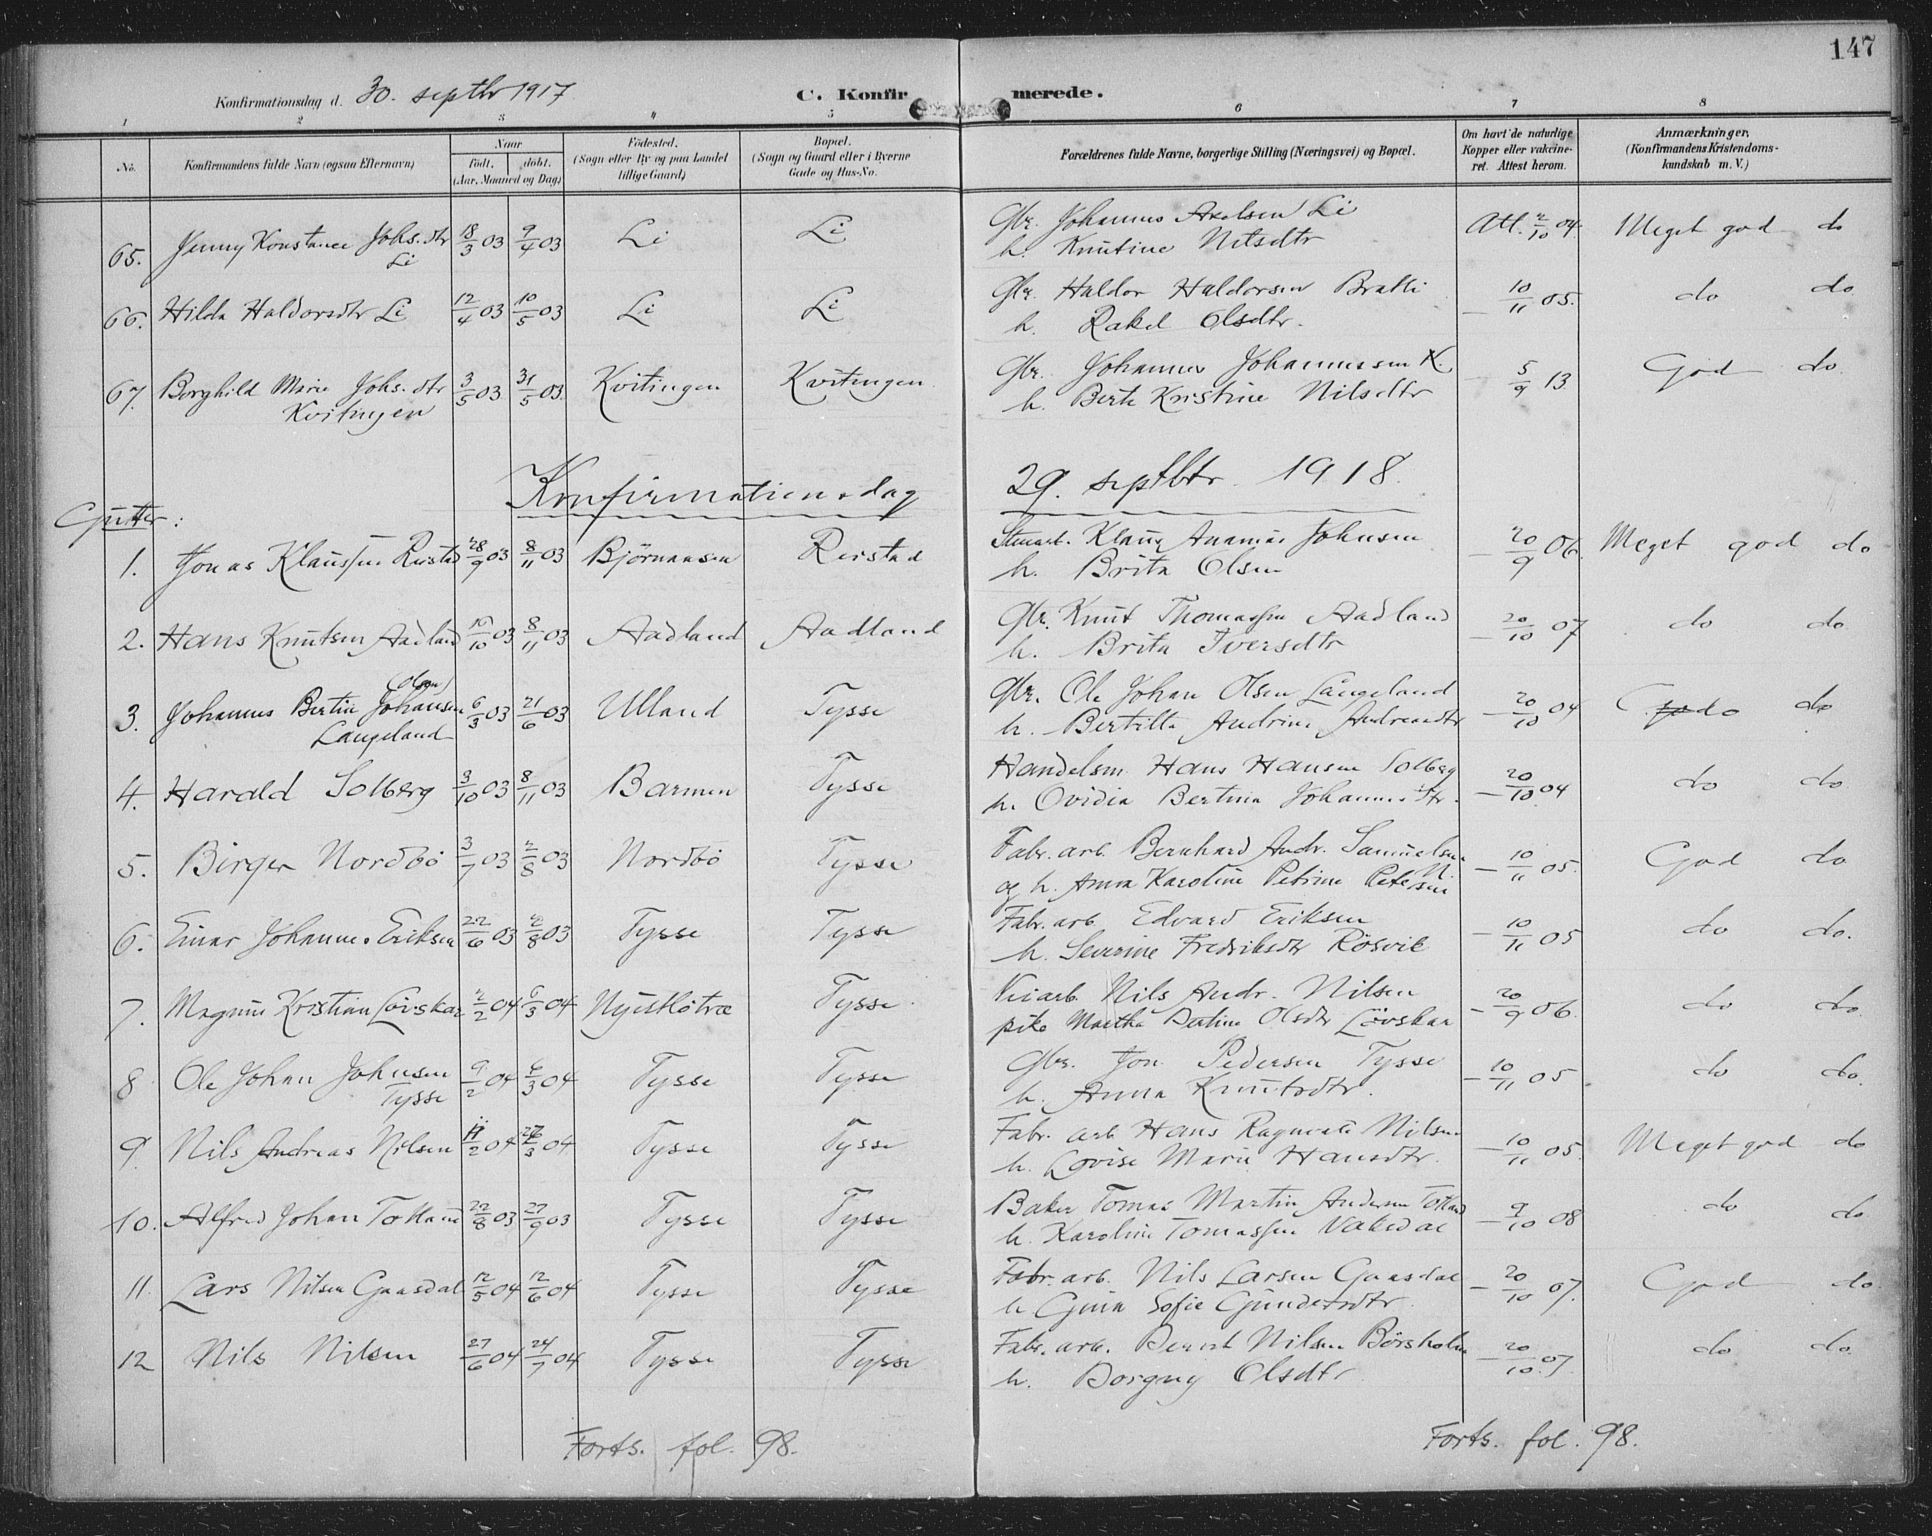 147
Konfirmationsdag d. 30. septbr 1917 C. Konfirmerede.
1 2 3 4 5 6 7 8
No. Konfirmandens fulde Navn (ogsaa Efternavn) Naar Födt. döbt. (Aar, Maaned og Dag) Födested. (Sogn eller By og paa Landet tillige Gaard) Bopæl. (Sogn og Gaard eller i Byerne Gade og Hus-No. Forældrenes fulde Navne, borgerlige Stilling (Næringsvei) og Bopæl. Om havt de naturlige Kopper eller vakcineret. Attest herom. Anmærkninger. (Konfirmandens Kristendomskundskab m. V.)
65. Jenny Konstance Johs.dtr Li 18/3 03 9/4 03 Li Li Gbr. Johannes Axelsen Li
h. Knutine Nilsdtr Att. 2/10 04. Meget god do
66. Hilda Haldorsdtr Li 12/4 03 10/5 03 Li Li Gbr. Haldor Haldorsen Bratli
h. Rakel Olsdtr. — 10/11 05. do do
67. Borghild Marie Johs.dtr Kvitingen 3/5 03 31/5 03 Kvitingen Kvitingen Gbr. Johannes Johannessen K.
h. Berta Kristine Nilsdtr — 5/9 13. God do.
Konfirmationsdag 29. septbr. 1918.
Gutter:
1. Jonas Klaussen Reistad 28/9 03 8/11 03 Björnaasen Reistad Stuert. Klaus Ananias Johnsen
h. Brita Olsen — 20/9 06. Meget god do
2. Hans Knutsen Aadland 10/10 03 8/11 03 Aadland Aadland Gbr. Knut Thomassen Aadland
h. Brita Iversdtr — 20/10 07 do do
3. Johannes Bertin Johansen (Olsen) Langeland 6/3 03 21/6 03 Ulland Tysse Gbr. Ole Johan Olsen Langeland
h. Bertilla Andrine Andreasdtr — 20/10 04 do do
4. Harald Solberg 3/10 03 8/11 03 Barmen Tysse Handelsm. Hans Hansen Solberg
h. Ovidia Bertina Johannesdtr. — 20/10 04 do do
5. Birger Nordbö 3/7 03 2/8 03 Nordbö Tysse Fabr. arb. Bernhard Andr. Samuelsen N.
og h. Anna Karoline Petrine Petersen — 10/11 05. God do
6. Einar Johannes Eriksen 22/6 03 2/8 03 Tysse Tysse Fabr. arb. Edvard Eriksen
h. Severine Fredriksdtr Rösvik — 10/11 05 do do.
7. Magnus Kristian Lövskar 2/2 04 6/3 04 Tysse Veiarb. Nils Andr. Nilsen
pike Martha Bertine Olsdtr Lövskar — 20/9 06. do do.
8 Ole Johan Johnsen Tysse 9/2 04 6/3 04 Tysse Tysse Gbr. Jon Pedersen Tysse
h. Anna Knutsdtr. — 10/11 05 do do.
9. Nils Andreas Nilsen 11/2 04 27/3 04 Tysse Tysse Fabr. arb. Hans Ragnvald Nilsen
h. Lovise Marie Hansdtr. — 10/11 05. Meget god do
10. Alfred Johan Totland 22/8 03 27/9 03 Tysse Tysse Baker Tomas Martin Andersen Totland
h. Karoline Tomassen Vaksdal — 9/10 08 do do
11. Lars Nilsen Gaasdal 12/5 04 12/6 04 Tysse Tysse Fabr. arb. Nils Larsen Gaasdal
h Gina Sofie Gundersdtr. — 20/10 07. God do.
12 Nils Nilsen 27/6 04 24/7 04 Tysse Tysse Fabr. arb. Bernt Nilsen Börsholm
h. Borgny Olsdtr — 20/10 07. do do.
Forts. fol. 98. Forts. fol. 98.